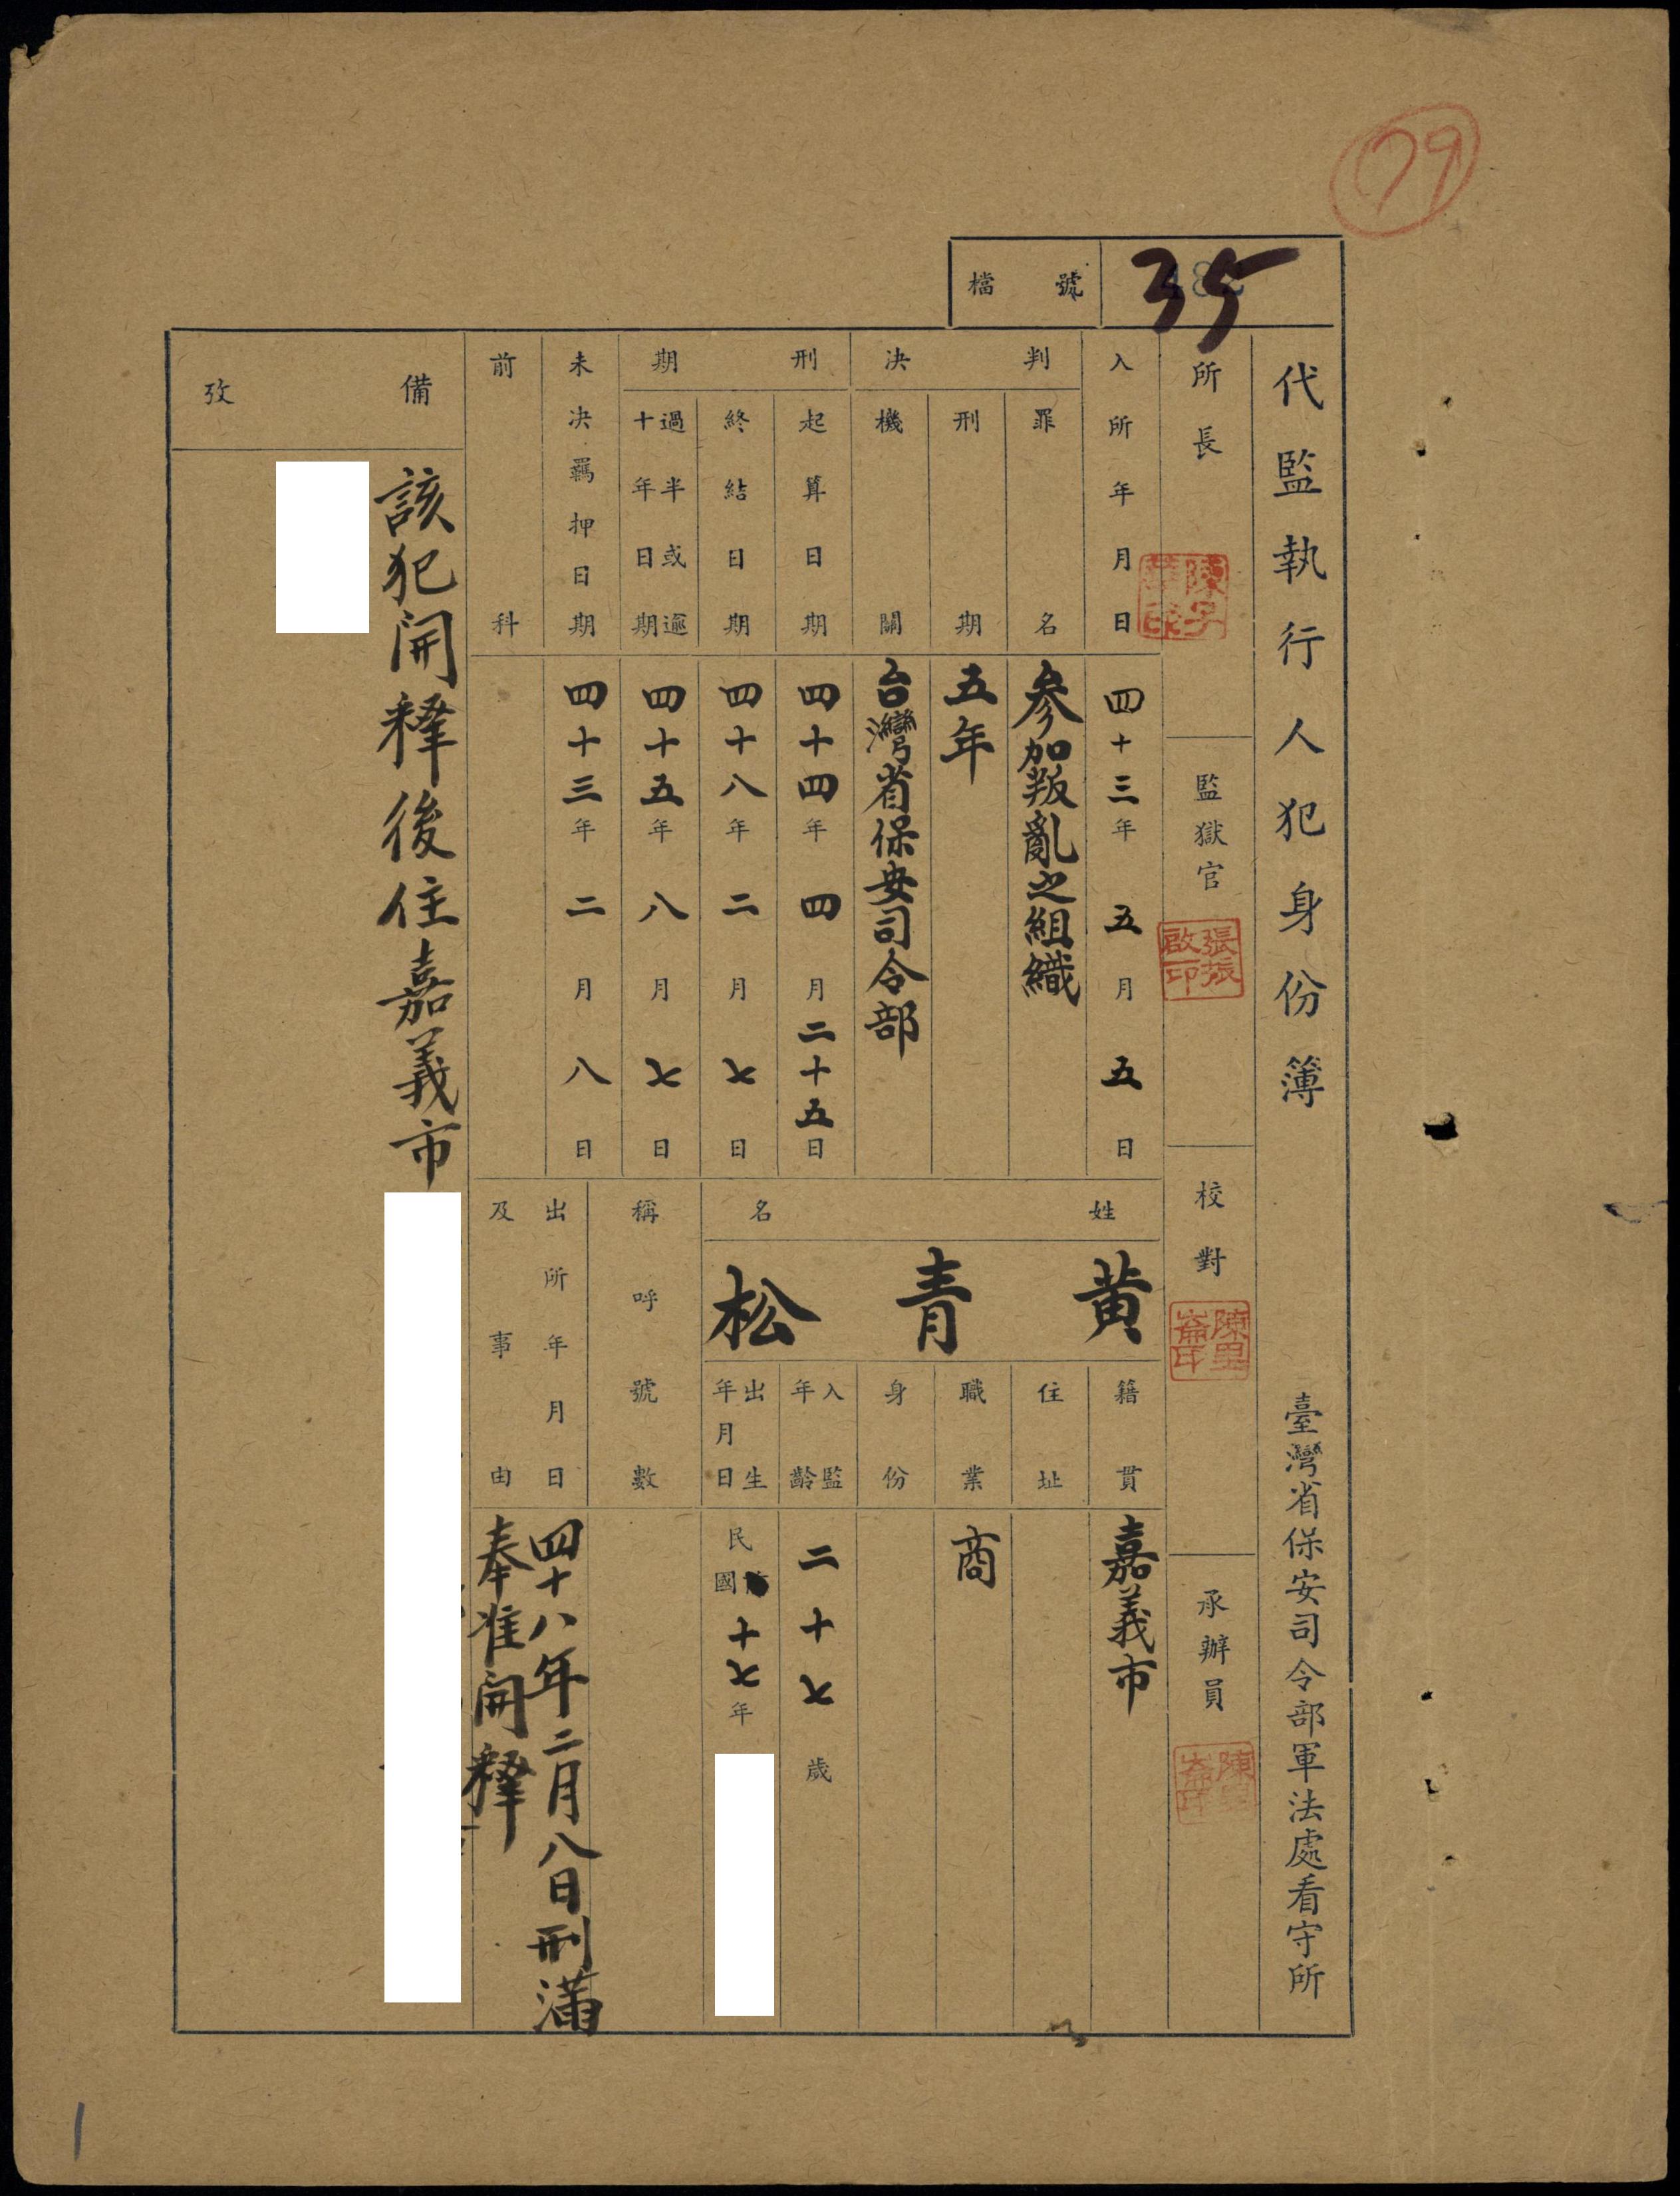 79
檔號
35
代監執行人犯身份簿
臺灣省保安司令部軍法處看守所
所長
監獄官
張振啟印
校對
承辦員
入所年月日
四十三年五月五日
判決
罪名
參加叛亂之組織
刑期
五年
機關
台灣省保安司令部
刑期
起算日期
四十四年四月二十五日
終結日期
四十八年二月七日
過半或逾十年日期
四十五年八月七日
未決羈押日期
四十三年二月八日
前科
姓名
黃青松
籍貫
嘉義市
住址
職業
商
身份
入監年齡
二十七歲
出生年月日
民國十七年
稱呼號數
出所年月日及事由
四十八年二月八日刑滿
奉准開釋
備攷
該犯開釋後住嘉義市